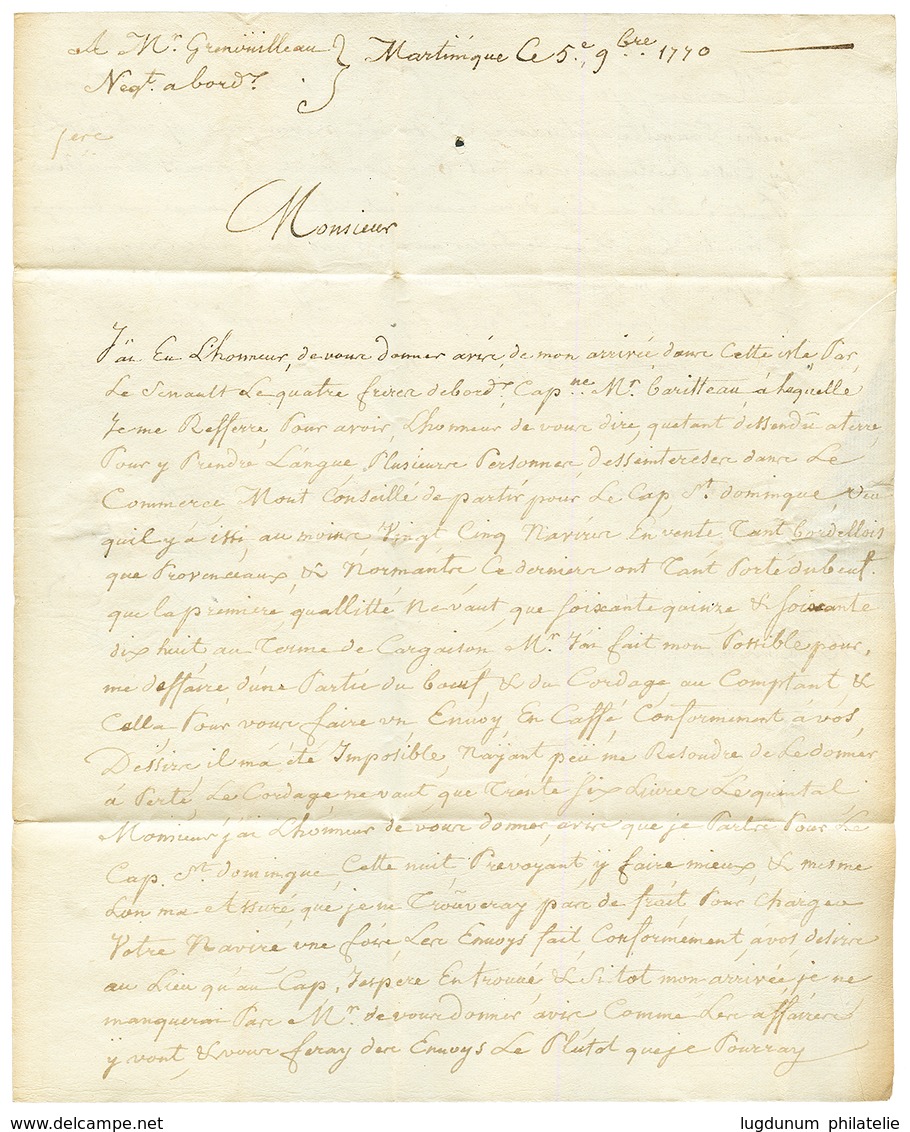 A Mr. Grenouilleau
Negt. a bordx.
Martinique Ce 5.e 9bre 1770
Monsieur
J'ai Eu L'honneur de vous donner avis de mon arrivée dans Cette isle Par
Le Senault Le quatre freres de bordx. Capne. Mr. baritteau a laquelle
Je me Refferre Pour avoir L'honneur de vous dire, quetant dessendû a terre
Pour y Prendre Langue Plusieurs Personnes dessinteresés dans Le
Commerce Mont Conseillé de partir pour Le Cap St. domingue, veu
quil y a issi au moins Vingt Cinq Navires En vente Tant bordellois
que Provenceaux & Normants Ce derniers ont Tant Porté du beuf.
que la premiere quallitté Ne vaut que soixante quinze & soixante
dix huit au Terme de Cargaison Mr. J'ai fait mon Possible pour,
me deffaire d'une Partie du boeuf & du Cordage au Comptant &
Cella Pour vous faire un Envoy En Caffé Conformement á vos
Dessirs il ma été Imposible, Nayant peü me Resoudre de Le donner
á Perte, Le Cordage ne vaut que Trente Six Livres Le quintal
Monsieur j'ai L'honneur de vous donner avis que je Partes Pour Le
Cap St. domingue Cette nuit Prevoyant ÿ faire mieux & mesme
Lon ma Assuré que je ne Troûveray pas de frait Pour Charger
Votre Navire une fois Les Envoys fait Conformément á vos desirs
au Lieu qu'au Cap, J'espere En trouvé & Si tot mon arrivée je ne
manquerai Pas Mr. de vous donner avis Comme Les affaires
ÿ vont & vous feray des Envoys Le Plûtot que je Pourray
lugdunum philatelie